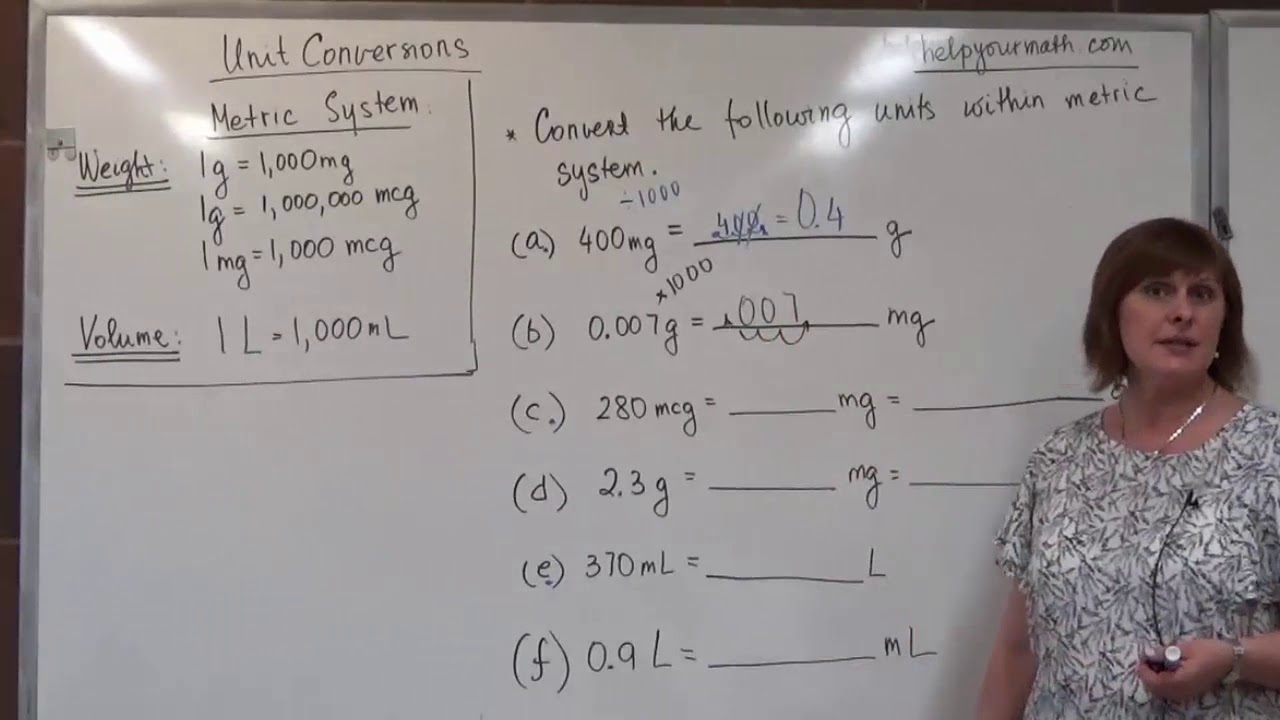 Unit Conversions
helpyourmath.com
Metric System.
Weight: 1g = 1,000mg
1g = 1,000,000 mcg
1mg = 1,000 mcg
Volume: 1 L = 1,000mL
* Convert the following units within metric
system.
÷1000
(a.) 400mg = 400. = 0.4 g
×1000
(b) 0.007g = .007 mg
(c.) 280 mcg = ______ mg = ______
(d) 2.3 g = ______ mg = ______
(e.) 370 mL = ______ L
(f) 0.9 L = ______ mL